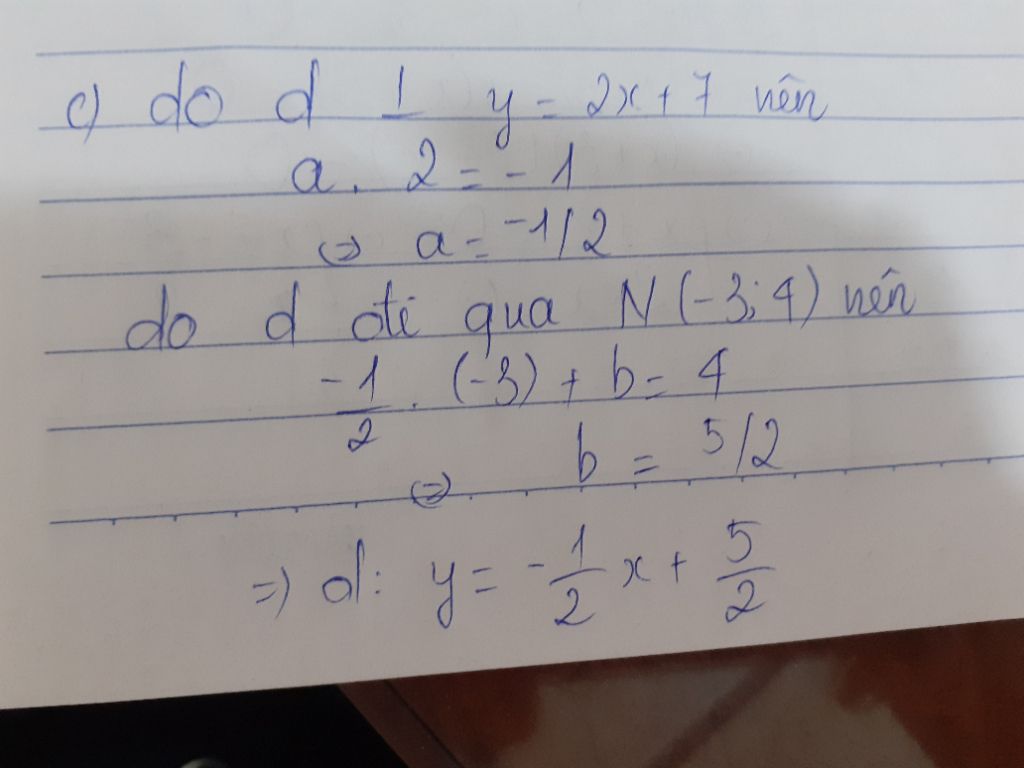 c) do d ⊥ y = 2x + 7 nên
a . 2 = - 1
⇔ a = -1/2
do d đi qua N (-3; 4) nên
-1/2 . (-3) + b = 4
⇔ b = 5/2
=) d: y = - 1/2 x + 5/2